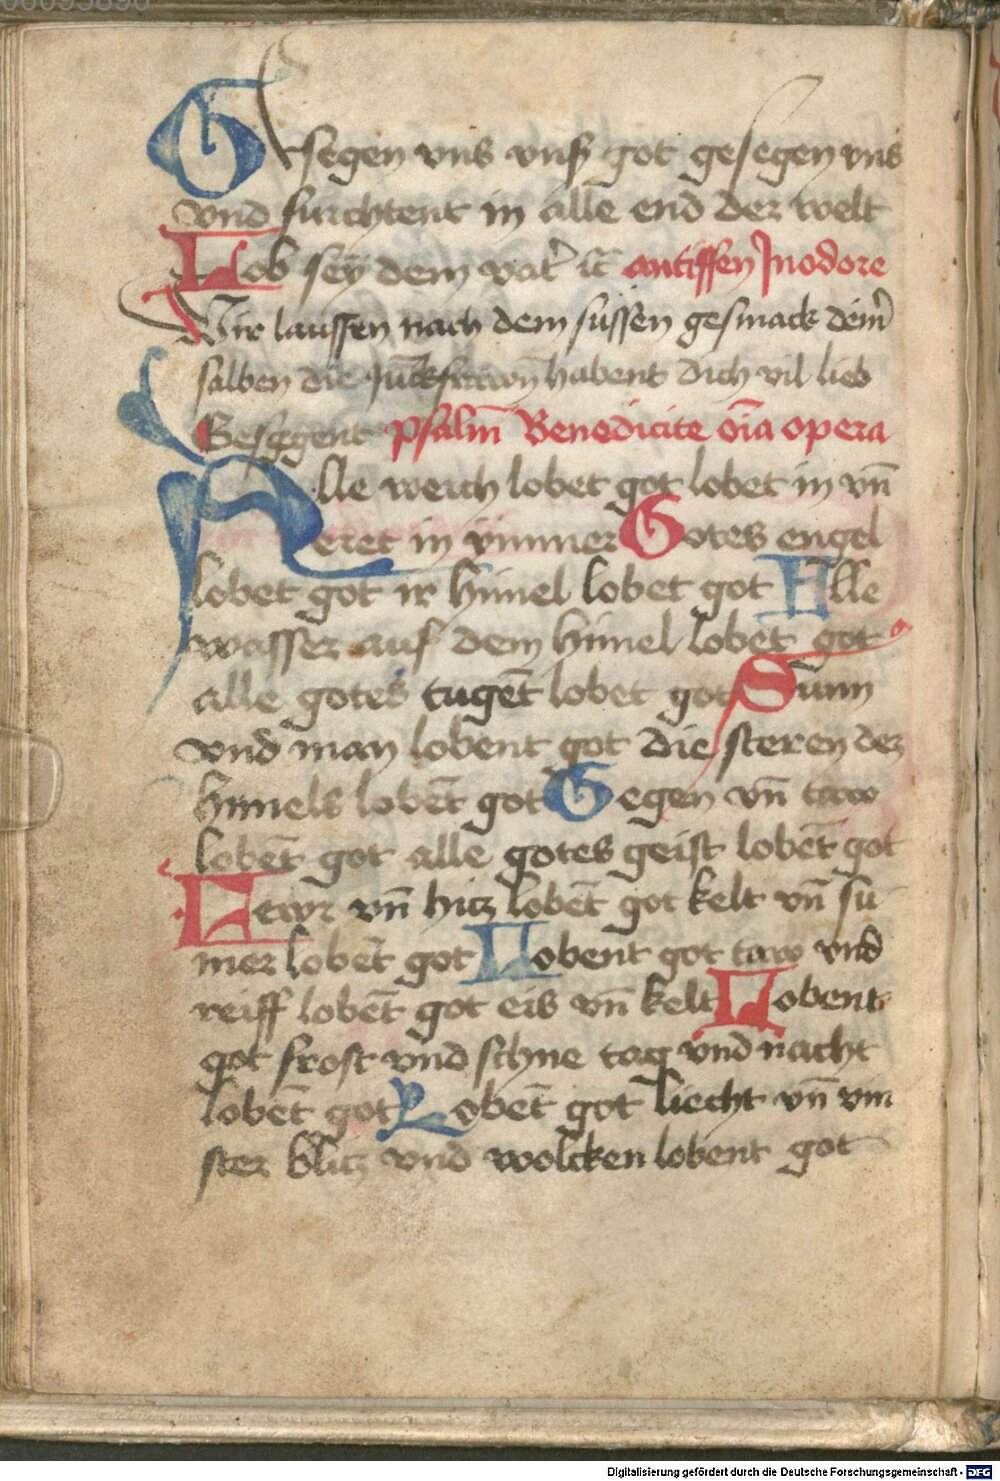 Gesegen vns vnser got gesegen vns
vnd furchtent in alle end der welt
Lob sey dem vat̓ ꝛc̄ antiffen Jn odore
Wir lauffen nach dem süssen gesmack dein̓
salben die Jūckfrawn̄ habent dich vil lieb
Gesegent psalm̄ Benedicite oīa opera
Alle werch lobet got lobet in vn̄
eret in ymmer Gotes engel
lobet got ir himel lobet got Alle
wasser auf dem himel lobet got
alle gotes tugēt lobet got Sunn
vnd man lobent got die steren des
himels lobēt got Gegen vn̄ taw
lobēt got alle gotes geist lobēt got
Fewr vn̄ hicz lobēt got kelt vn̄ su
mer lobēt got Lobent got taw vnd
reiff lobēt got eis vn̄ kelt Lobent
got frost vnd schne tag vnd nacht
lobēt got Lobēt got liecht vn̄ vin
ster blicz vnd wolcken lobent got
Digitalisierung gefördert durch die Deutsche Forschungsgemeinschaft - DFG